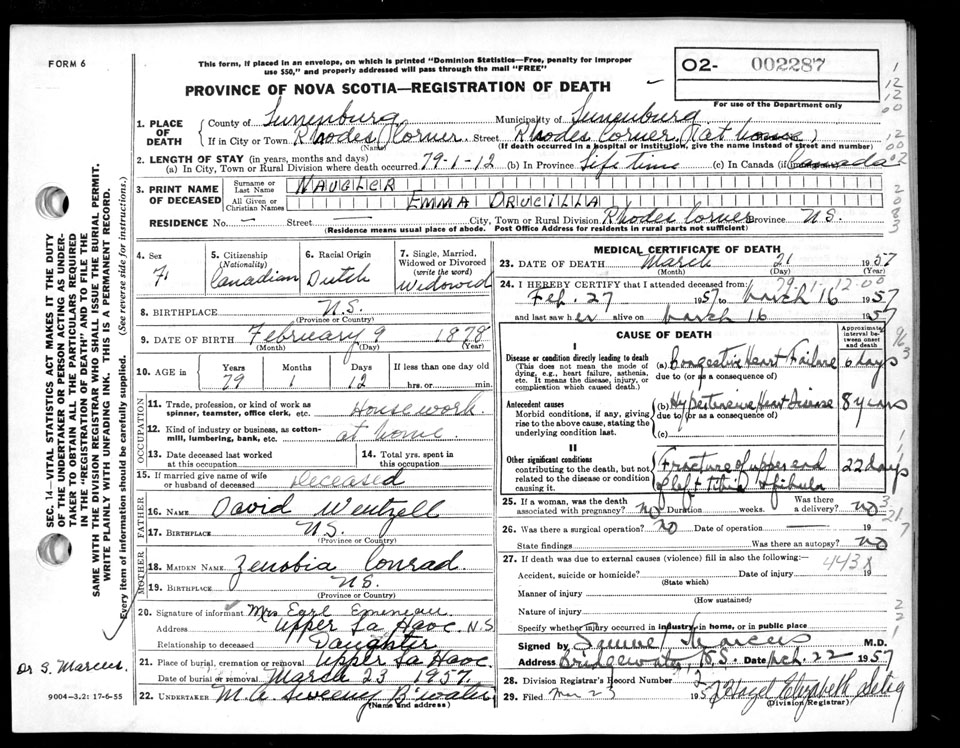 FORM 6
This form, if placed in an envelope, on which is printed "Dominion Statistics—Free, penalty for improper
use $50," and properly addressed will pass through the mail "FREE"
O2- 002287
For use of the Department only
PROVINCE OF NOVA SCOTIA—REGISTRATION OF DEATH
1. PLACE OF DEATH
County of Lunenburg Municipality of Lunenburg
If in City or Town Rhodes Corner. Street Rhodes Corner (at home)
(Name) (If death occurred in a hospital or institution, give the name instead of street and number)
2. LENGTH OF STAY (in years, months and days)
(a) In City, Town or Rural Division where death occurred 79-1-12 (b) In Province Life time (c) In Canada (if immigrant)
3. PRINT NAME OF DECEASED
Surname or Last Name NAUGLER
All Given or Christian Names EMMA DRUCILLA
RESIDENCE No. — Street — City, Town or Rural Division Rhodes Corner Province N.S.
(Residence means usual place of abode. Post Office Address for residents in rural parts not sufficient)
4. Sex F.
5. Citizenship (Nationality) Canadian
6. Racial Origin Dutch
7. Single, Married, Widowed or Divorced (write the word) Widowed
8. BIRTHPLACE N.S.
(Province or Country)
9. DATE OF BIRTH February 9 1878
(Month) (Day) (Year)
10. AGE in Years 79 Months 1 Days 12 If less than one day old hrs. or min.
OCCUPATION
11. Trade, profession, or kind of work as spinner, teamster, office clerk, etc. Housework.
12. Kind of industry or business, as cotton-mill, lumbering, bank, etc. at home.
13. Date deceased last worked at this occupation
14. Total yrs. spent in this occupation
15. If married give name of wife or husband of deceased Deceased
FATHER
16. NAME David Wentzell
17. BIRTHPLACE N.S.
(Province or Country)
MOTHER
18. MAIDEN NAME Zenobia Conrad.
19. BIRTHPLACE N.S.
(Province or Country)
20. Signature of informant Mrs Earl Emeneau
Address Upper La Have. N.S
Relationship to deceased Daughter
21. Place of burial, cremation or removal Upper La Have.
Date of burial or removal March 23 1957.
22. UNDERTAKER M.A. Sweeny B'water
(Name and address)
MEDICAL CERTIFICATE OF DEATH
23. DATE OF DEATH March 21 1957
(Month) (Day) (Year)
79-1-12-00
24. I HEREBY CERTIFY that I attended deceased from:
Feb. 27 1957 to March 16 1957
and last saw her alive on March 16 1957
CAUSE OF DEATH
Approximate interval between onset and death
I
Disease or condition directly leading to death
(This does not mean the mode of dying, e.g., heart failure, asthenia, etc. It means the disease, injury, or complication which caused death.)
(a) Congestive Heart Failure 6 days
due to (or as a consequence of)
Antecedent causes
Morbid conditions, if any, giving rise to the above cause, stating the underlying condition last.
(b) Hypertensive Heart Disease 8 years
due to (or as a consequence of)
(c)
II
Other significant conditions
contributing to the death, but not related to the disease or condition causing it.
Fracture of upper end of left tibia & fibula 22 days
25. If a woman, was the death associated with pregnancy? No Duration weeks. Was there a delivery? no
26. Was there a surgical operation? NO Date of operation 19
State findings Was there an autopsy? no
27. If death was due to external causes (violence) fill in also the following:— 443X
Accident, suicide or homicide? Date of injury 19
(State which)
Manner of injury
(How sustained)
Nature of injury
Specify whether injury occurred in industry, in home, or in public place
Signed by Samuel Marcus M.D.
Address Bridgewater, N.S. Date Mch. 22 1957
28. Division Registrar's Record Number 2
29. Filed Mar 23 195 Hazel Elizabeth Selig
(Division Registrar)
SEC. 14—VITAL STATISTICS ACT MAKES IT THE DUTY
OF THE UNDERTAKER OR PERSON ACTING AS UNDER-
TAKER TO OBTAIN ALL THE PARTICULARS REQUIRED
IN THE "REGISTRATION OF DEATH" AND TO FILE THE
SAME WITH THE DIVISION REGISTRAR WHO SHALL ISSUE THE BURIAL PERMIT.
WRITE PLAINLY WITH UNFADING INK. THIS IS A PERMANENT RECORD.
Every item of information should be carefully supplied. (See reverse side for instructions.)
Dr S. Marcus.
9004-3.2: 17-6-55